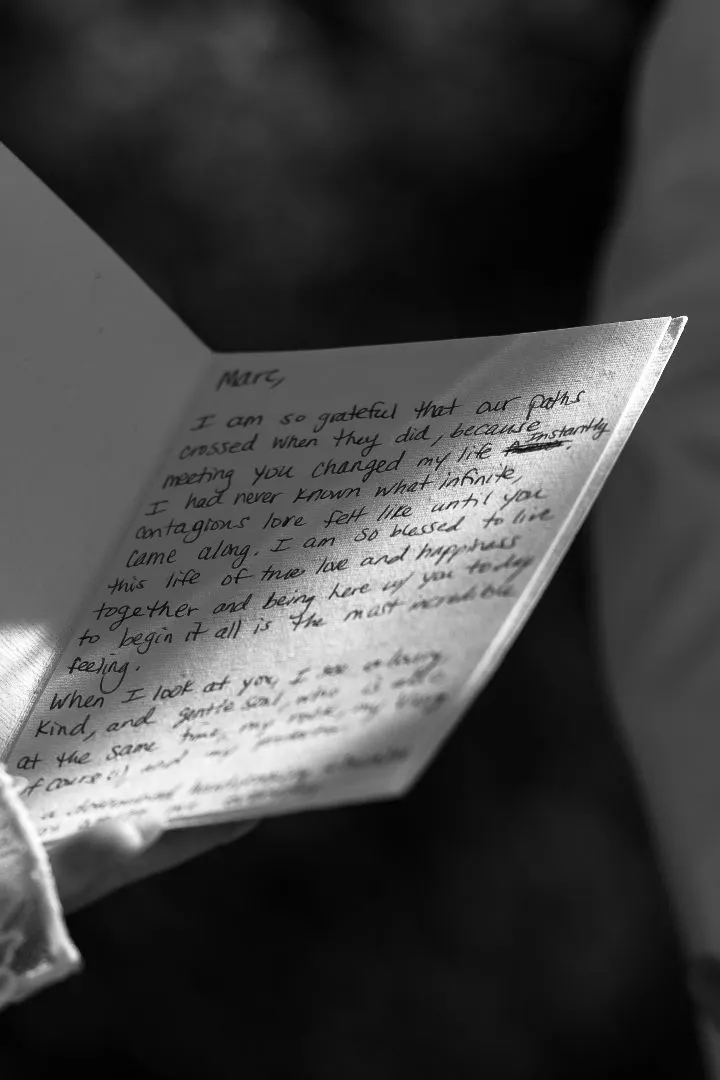 Marc,
I am so grateful that our paths
crossed when they did, because
meeting you changed my life Instantly.
I had never known what infinite,
contagious love felt like until you
came along. I am so blessed to live
this life of true love and happiness
together and being here w/ you today
to begin it all is the most incredible
feeling.
When I look at you, I see a loving
kind, and gentle soul, who is
at the same time, my rock, my
of course!) and my